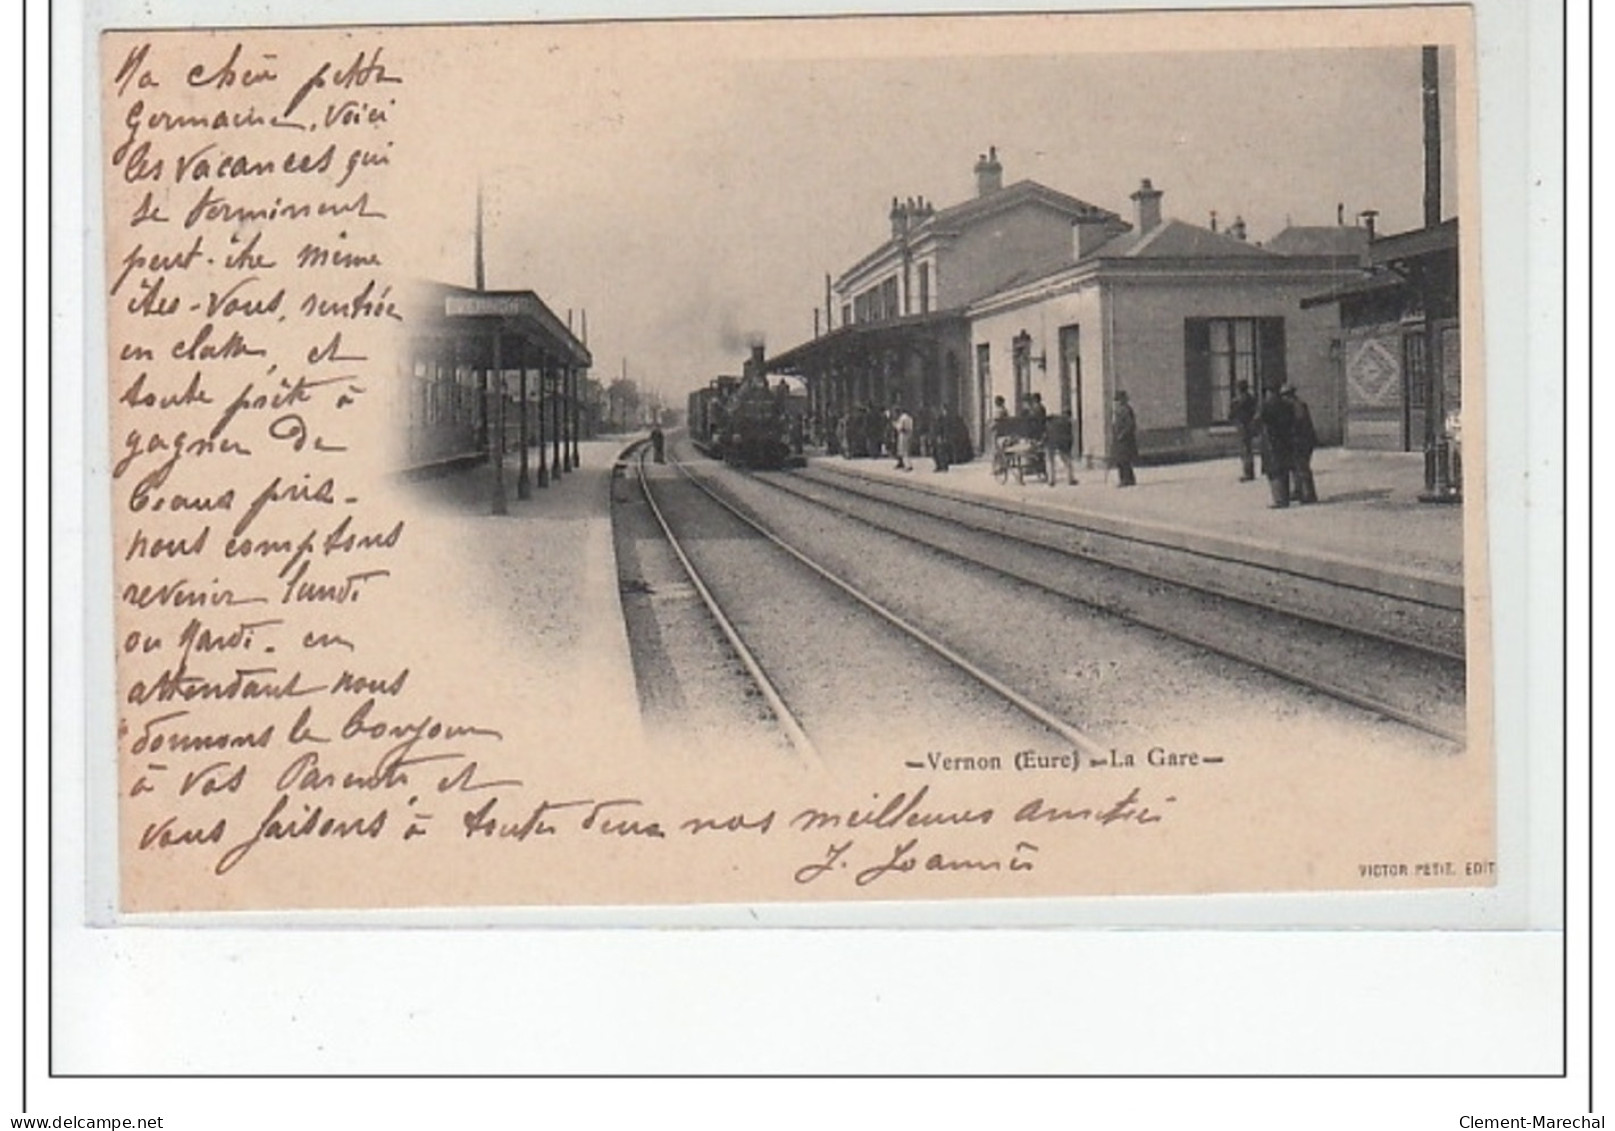 Ma chère petite
Germaine, voici
les vacances qui
se terminent
peut-être même
êtes-vous, rentrée
en classe, et
toute prête à
gagner de
beaux prix -
nous comptons
revenir lundi
ou Mardi - en
attendant nous
donnons le bonjour
à vos Parents, et
vous faisons à toutes deux nos meilleures amitiés
J. Joannès
VERNON
-Vernon (Eure) -La Gare-
VICTOR PETIT. EDIT
delcampe.net
Clement-Marechal